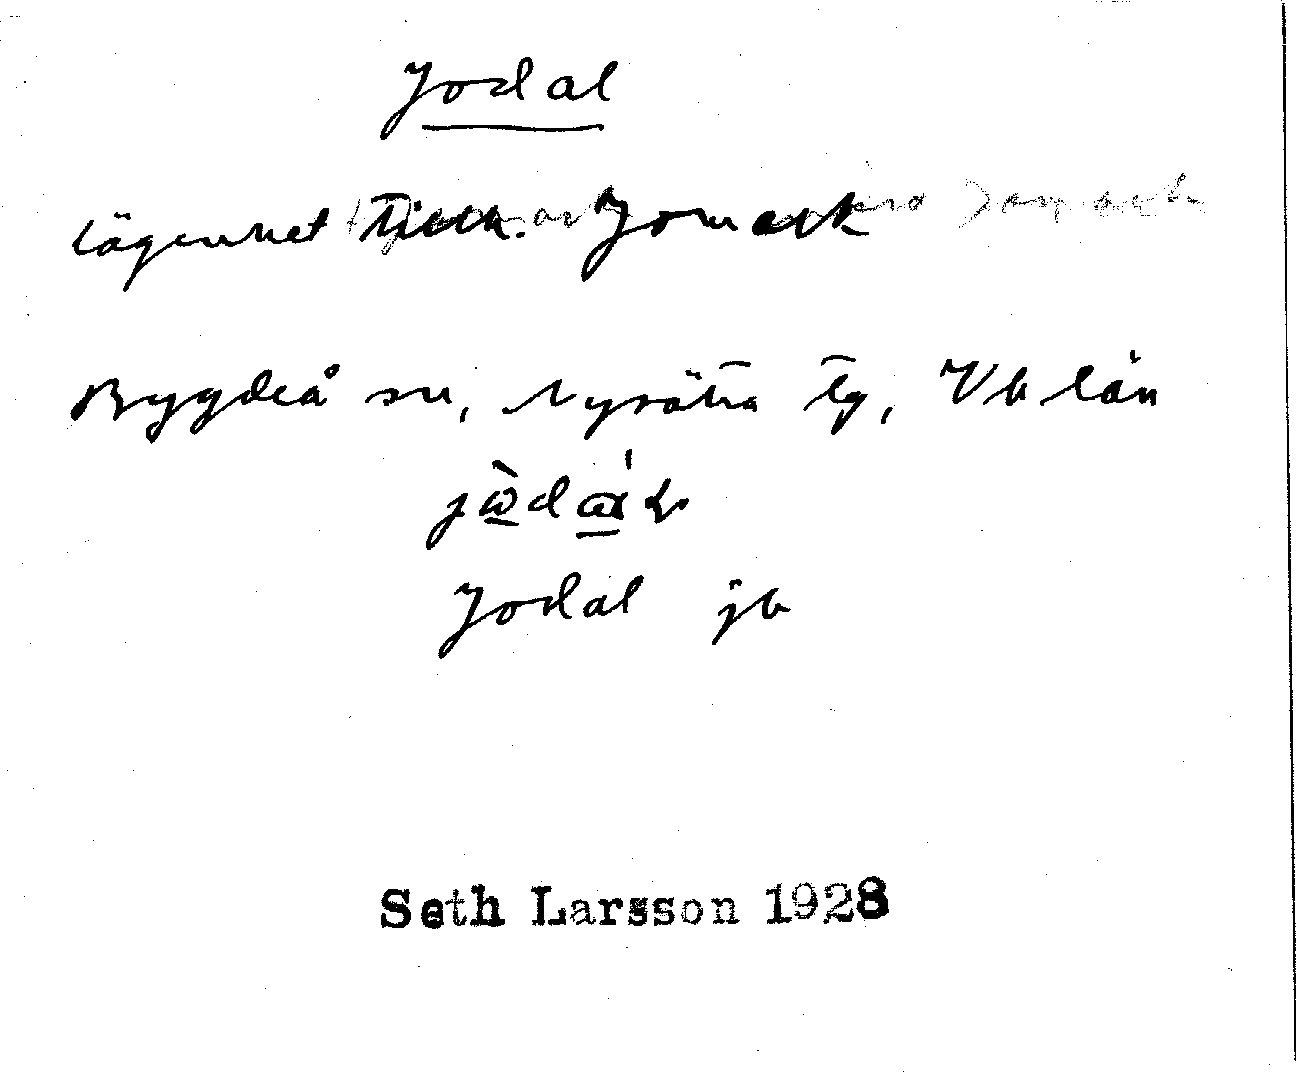 Jodal
lägenhet till Jomark
Bygdeå sn, Nysätra tg, Vb län
Jodal jb
Seth Larsson 1928